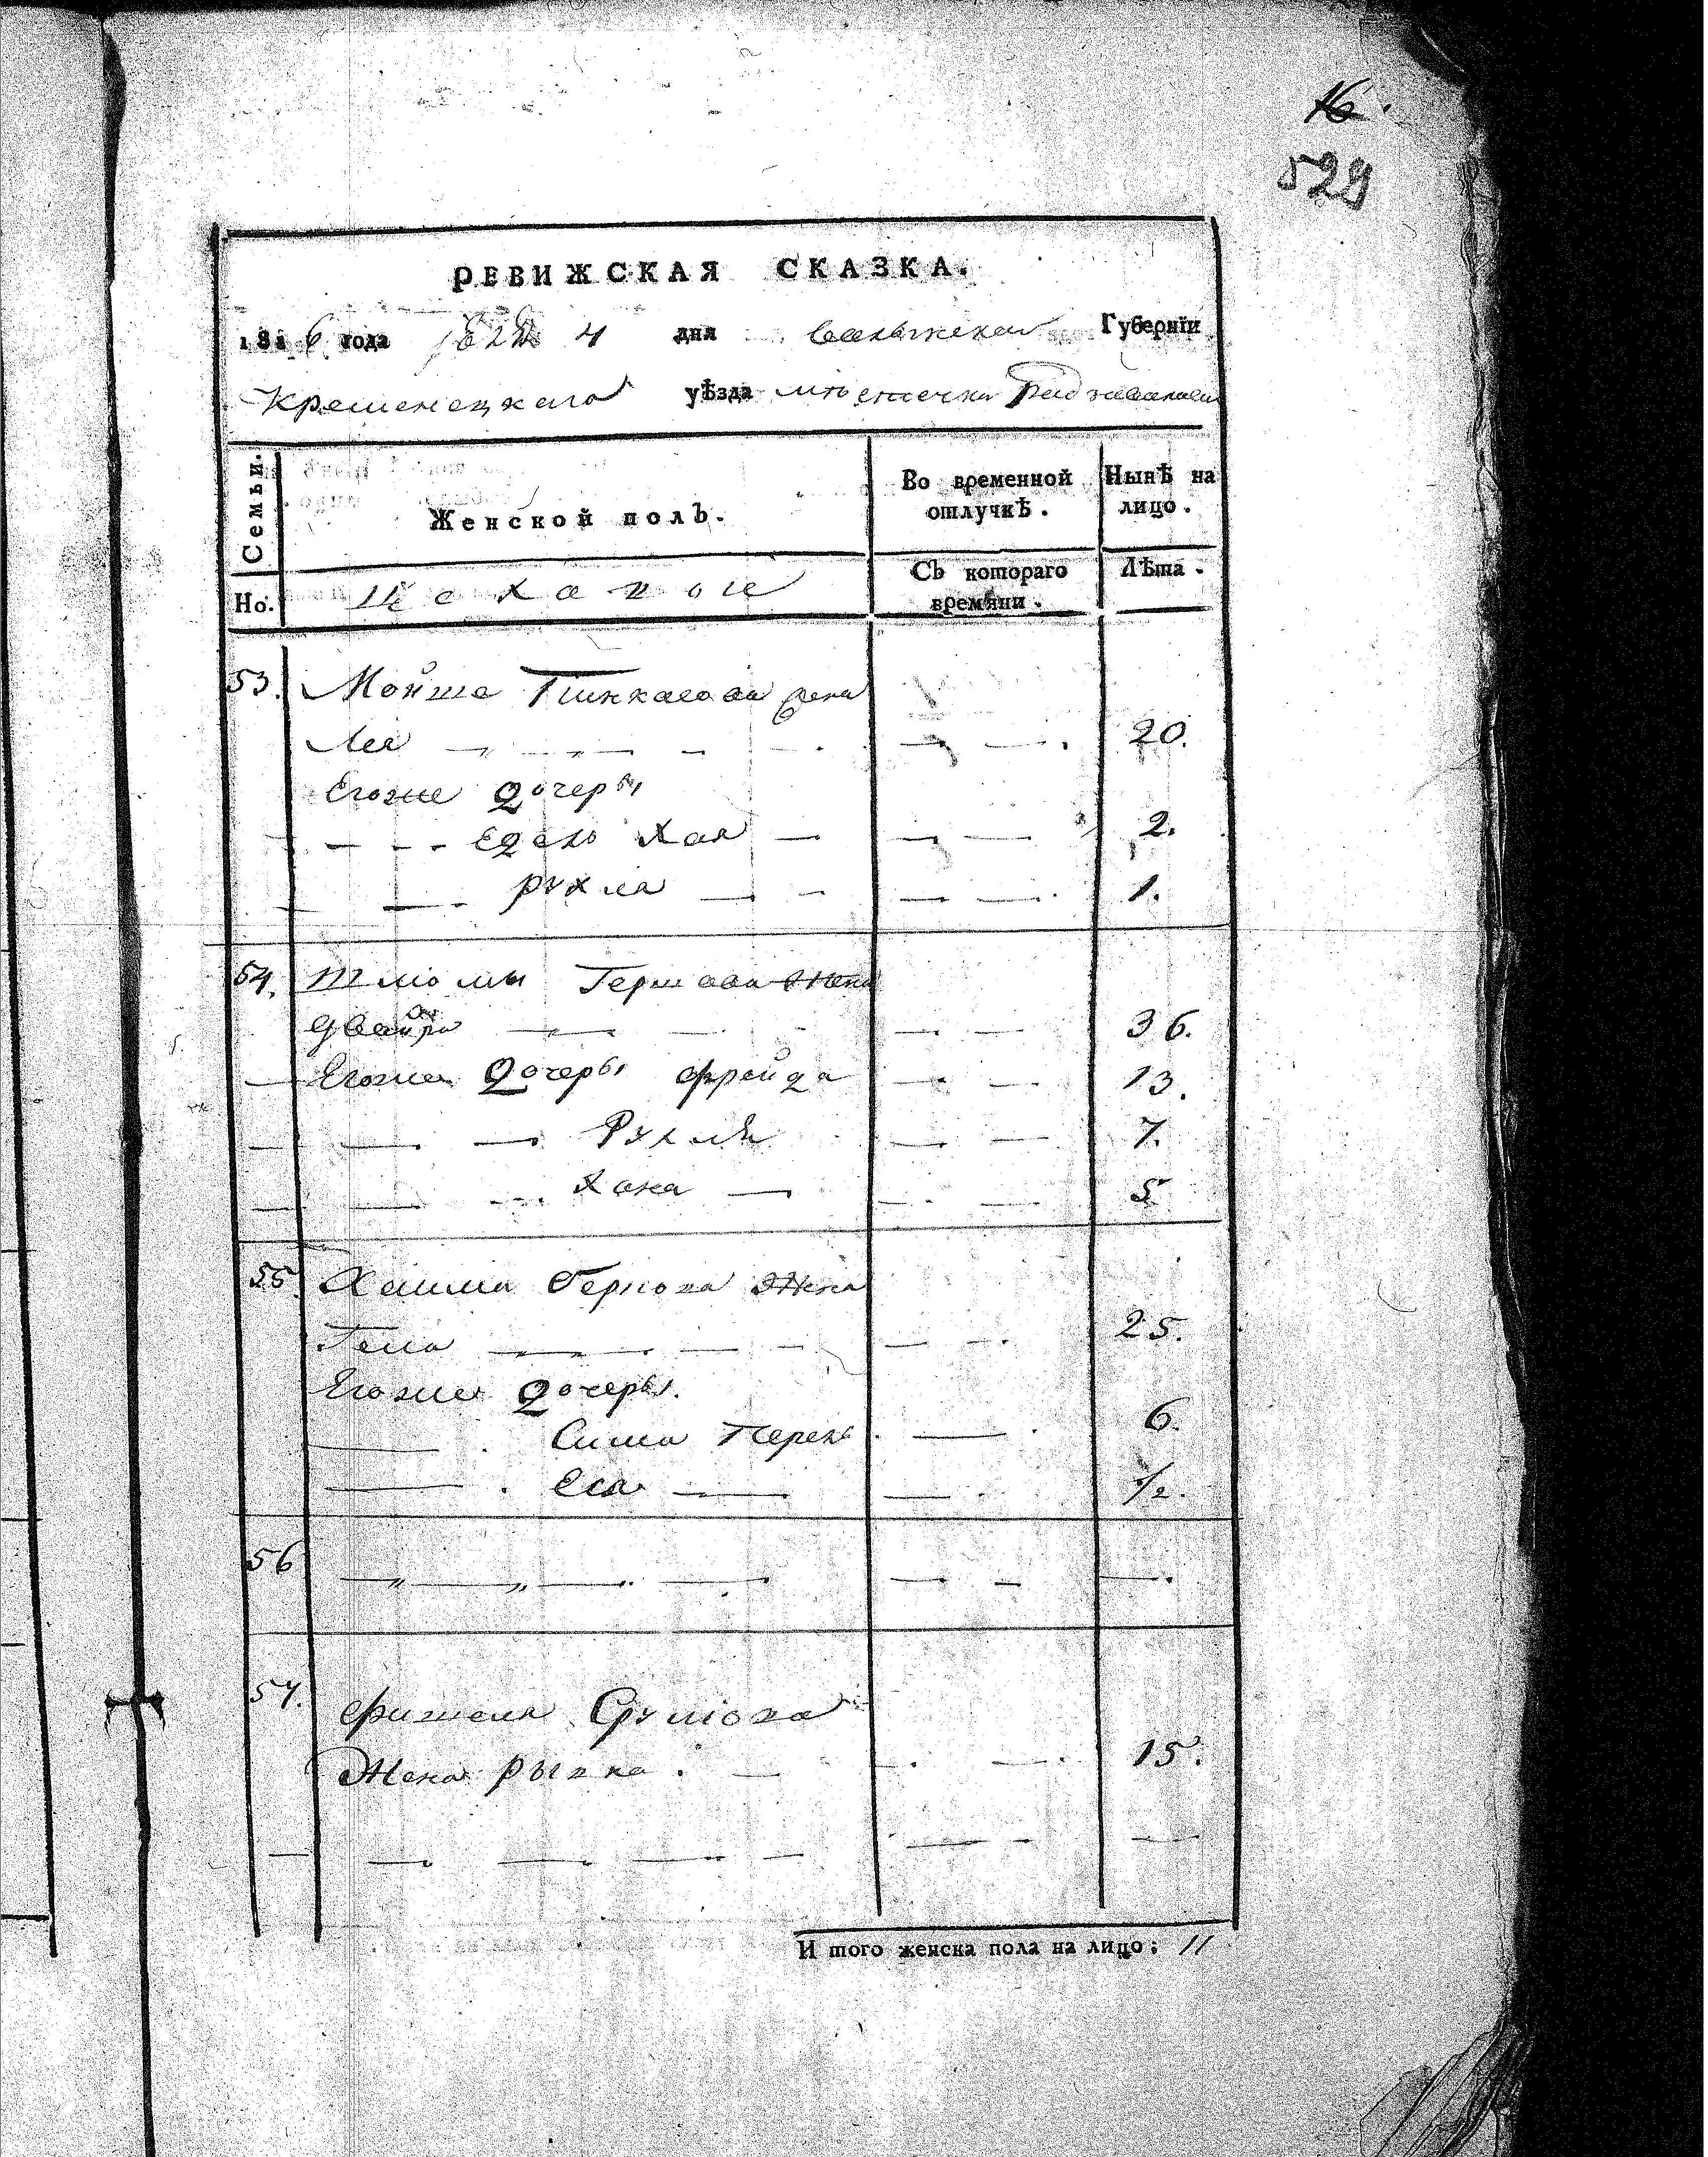 16.
529
РЕВИЖСКАЯ СКАЗКА.
1816 года 4 дня Волынской Губерніи
Кременецкаго уѣзда мѣстечка Радзивилова
Семьи.
Женской полъ.
Во временной отлучкѣ.
Нынѣ на лицо.
Но.
Съ котораго времяни.
Лѣта.
53. Мойше Пинкасова жена
Лея 20.
Егоже дочеры
Едель Хая 2.
Рухля 1.
54. Шлiомы Гершова жена
Двойра 36.
Егоже дочеры Фрейда 13.
Рухля 7.
Хана 5
55. Хаима жена
25.
Егоже дочеры.
Сима Перель 6.
1/2.
56
57. Фишеля Срулiова
Жена 15.
И того женска пола на лицо: 11